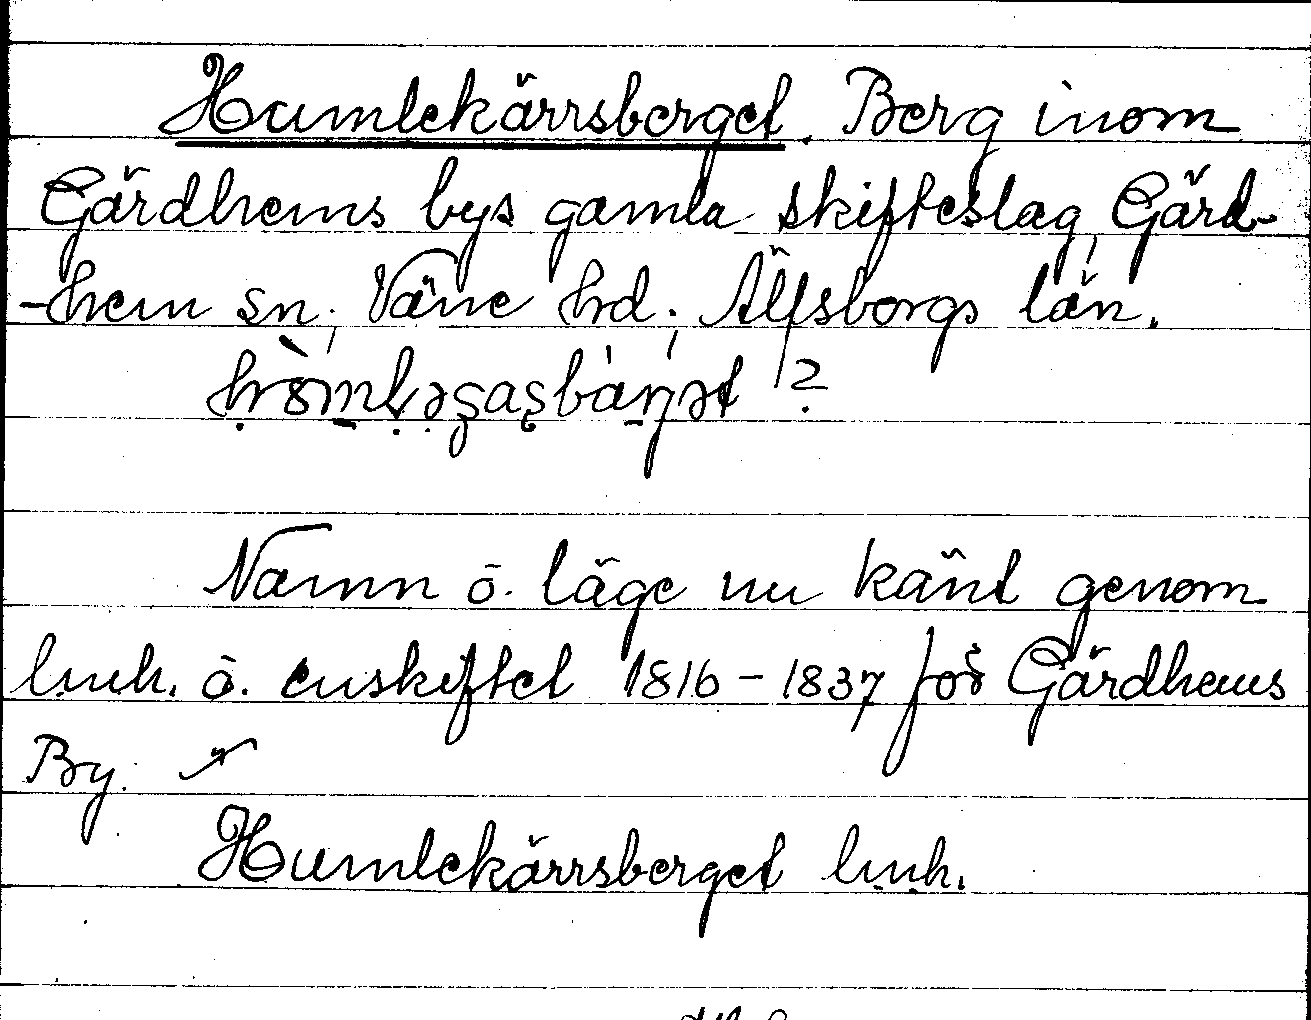 Humlekärrsberget. Berg inom
Gärdhems bys gamla skifteslag, Gärd-
-hem sn; Väne hd; Älfsborgs län.
?
Namn o. läge nu känt genom
lmh. o. enskiftet 1816-1837 för Gärdhems
By.
Humlekärrsberget lmh.